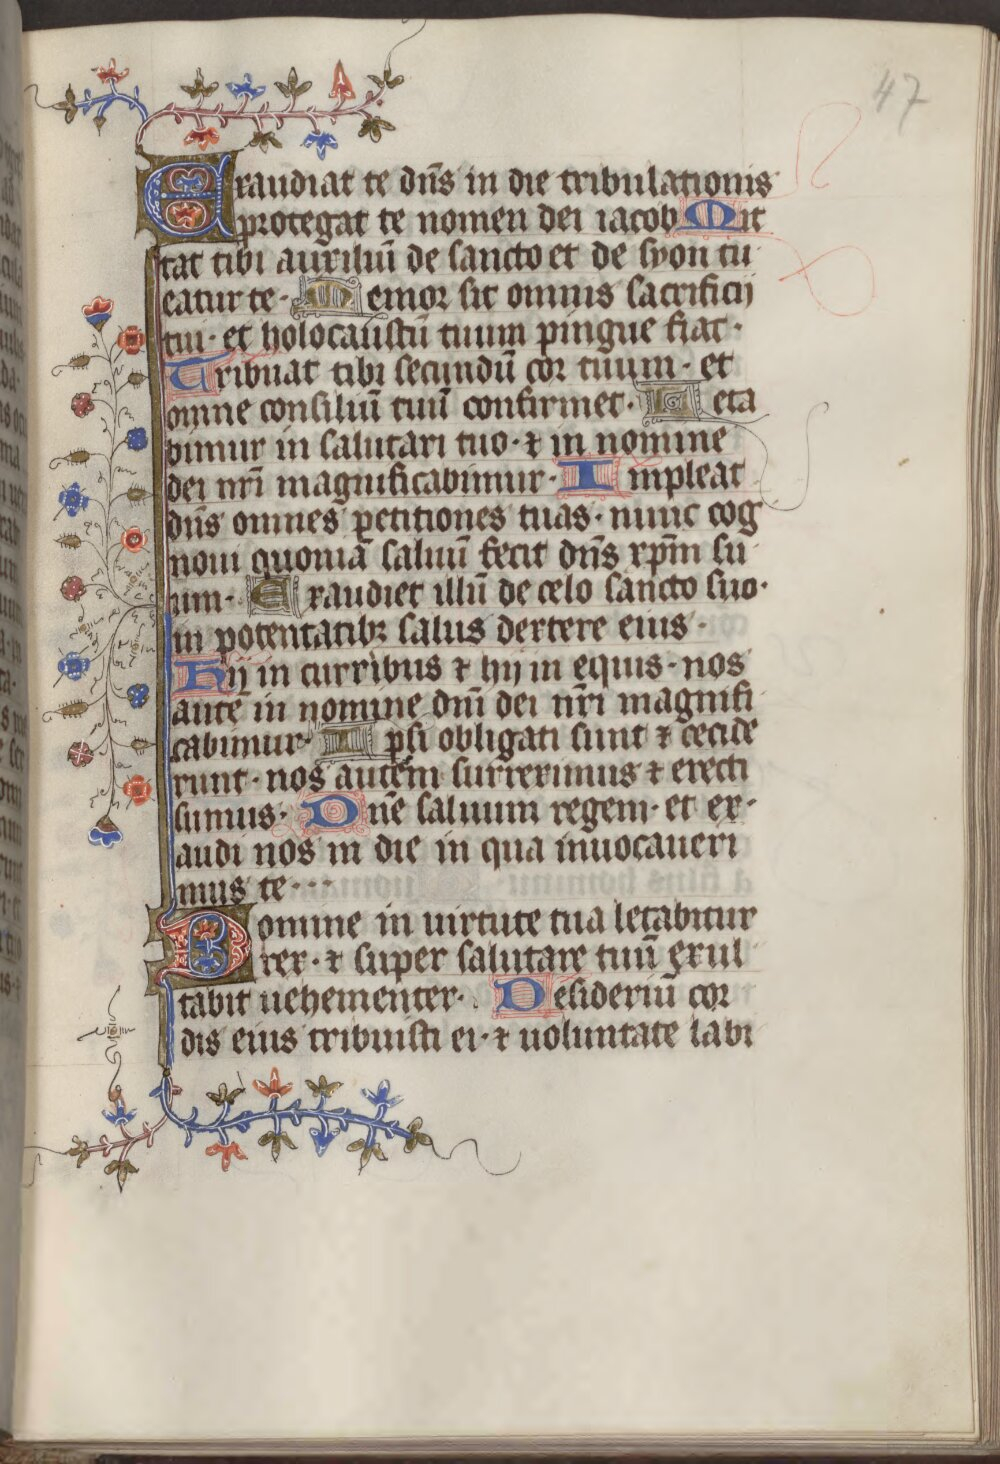 47
Exaudiat te dn̄s in die tribulationis
protegat te nomen dei iacob Mit
tat tibi auxiliū de sancto et de syon tu
eatur te · Memor sit omnis sacrificij
tui · et holocaustū tuum pingue fiat ·
Tribuat tibi secundū cor tuum · et
omne consiliū tuū confirmet · Leta
bimur in salutari tuo · ⁊ in nomine
dei nr̄i magnificabimur · Impleat
dn̄s omnes petitiones tuas · nunc cog
noui quoniā saluū fecit dn̄s xp̄m su
um · Exaudiet illū de celo sancto suo ·
in potentatibꝫ salus dextere eius ·
Hij in curribus ⁊ hij in equis · nos
autē in nomine dnī dei nr̄i magnifi
cabimur · Ipsi obligati sunt ⁊ cecide
runt · nos autem surreximus ⁊ erecti
sumus · Dn̄e saluum regem · et ex·
audi nos in die in qua inuocaueri
mus te · · ·
Domine in uirtute tua letabitur
rex · ⁊ super salutare tuū exul
tabit uehementer · Desideriū cor
dis eius tribuisti ei · ⁊ uoluntate labi